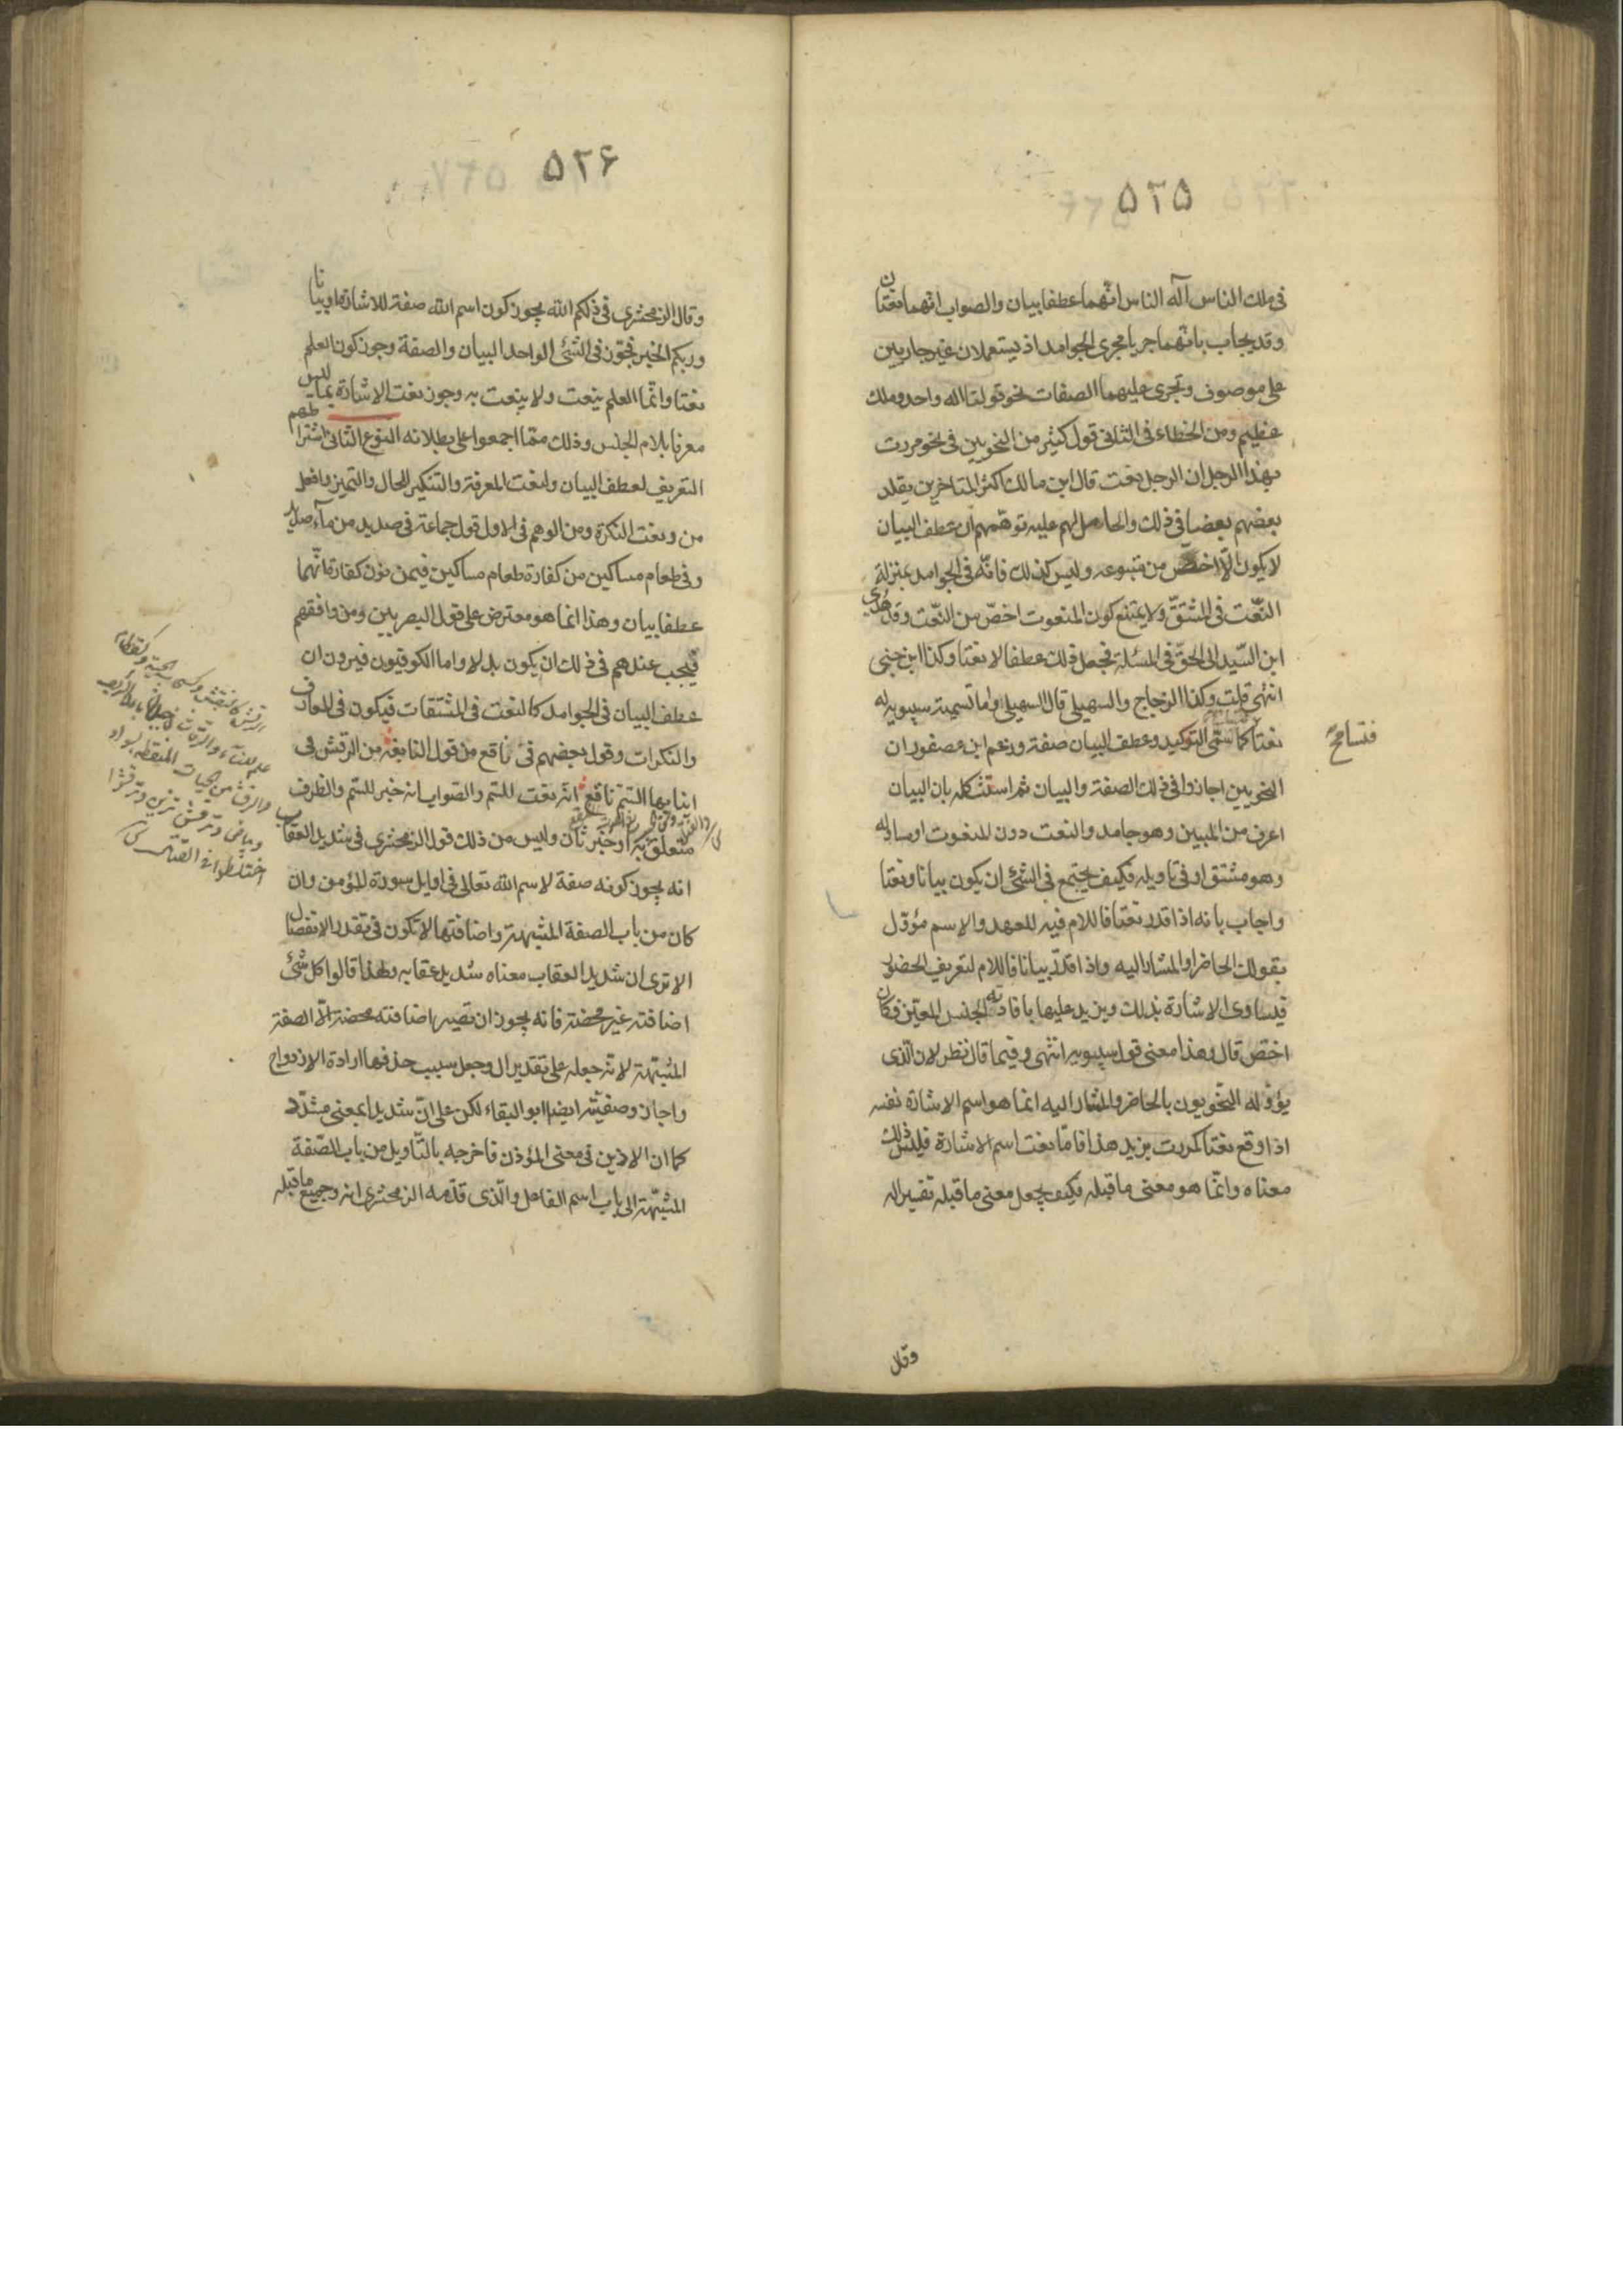 ۵۲۵
فى ملك الناس آله الناس انهما عطفا بيان والصواب انهما نعتان
وقد يجاب بانهما جريا مجرى الجوامد اذ يستعملان غير جاريين
على موصوف وتجرى عليهما الصفات نحو قولنا اله واحد وملك
عظيم ومن الخطاء فى الثانى قول كثير من النحويين فى نحو مررت
بهذا الرجل ان الرجل نعت قال ابن مالك اكثر المتاخرين يقلد
بعضهم بعضا فى ذلك والحامل لهم عليه توهمهم ان عطف البيان
لا يكون الّا اخصّ من متبوعه وليس كذلك فانّه فى الجوامد بمنزلة
النّعت فى المشتقّ ولا يمتنع كون المنعوت اخصّ من النّعت وقد هدى
ابن السّيد الى الحقّ فى المسئلة فجعل ذلك عطفا لا نعتا وكذا ابن جنى
انتهى قلت وكذا الزجاج والسهيلى قال السهيلى واما تسمية سيبويه له
نعتا كما سمّى التوكيد وعطف البيان صفة وزعم ابن عصفور ان
فتسامح
النحويين اجازوا فى ذلك الصفة والبيان ثم استشكله بان البيان
اعرف من المبين وهو جامد والنعت دون المنعوت او مساو له
وهو مشتق او فى تاويله فكيف يجتمع فى الشئ ان يكون بيانا ونعتا
واجاب بانه اذا قدر نعتا فاللام فيه للعهد والاسم مؤوّل
بقولك الحاضر او المشار اليه واذا قدّر بيانا فاللام لتعريف الحضور
فيساوى الاشارة بذلك ويزيد عليها بافادته الجنس المعيّن فكان
اخصّ قال وهذا معنى قول سيبويه انتهى وفيما قال نظر لان الّذى
يؤوّله النّحويون بالحاضر والمشار اليه انما هو اسم الاشارة نفسه
اذا وقع نعتا كمررت بزيد هذا فامّا نعت اسم الاشارة فليس ذلك
معناه وانّما هو معنى ما قبله فكيف يجعل معنى ما قبله تفسيرا له
وقال
۵۲۶
وقال الزمخشرى فى ذلكم الله يجوز كون اسم الله صفة للاشارة او بيانا
وربكم الخبر فجوّز فى الشئ الواحد البيان والصفة وجوز كون العلم
نعتا وانّما العلم ينعت ولا ينعت به وجوز نعت الاشارة بما ليس
معرفا بلام الجنس وذلك ممّا اجمعوا على بطلانه النوع الثانى اشتراطهم
التعريف لعطف البيان ولنعت المعرفة والتنكير للحال والتميز وافعل
من ونعت النكرة ومن الوهم فى الاول قول جماعة فى صديد من مآء صديد
وفى طعام مساكين من كفارة طعام مساكين فيمن نون كفارة انّهما
عطفا بيان وهذا انما هو معترض على قول البصريين ومن وافقهم
فيجب عندهم فى ذلك ان يكون بدلا واما الكوفيون فيرون ان
عطف البيان فى الجوامد كالنعت فى المشتقات فيكون فى المعارف
والنكرات وقول بعضهم فى ناقع من قول النابغة من الرقش فى
انيابها السّم ناقع انّه نعت للسّم والصواب انه خبر للسّم والظرف
متعلق به او خبر ثان وليس من ذلك قول الزمخشرى فى شديد العقاب
انه يجوز كونه صفة لاسم الله تعالى فى اوايل سورة المؤمن وان
كان من باب الصفة المشبهة واضافتها لا تكون فى تقدير الانفصال
الا ترى ان شديد العقاب معناه شديد عقابه ولهذا قالوا كل شئ
اضافته غير محضة فانه يجوز ان تصير اضافته محضة الّا الصفة
المشبّهة لانّه جعله على تقدير ال وجعل سبب حذفها ارادة الازدواج
واجاز وصفيّته ايضا ابو البقاء لكن على انّ شديدا بمعنى مشدّد
كما ان الاذين فى معنى المؤذن فاخرجه بالتّاويل من باب الصّفة
المشبّهة الى باب اسم الفاعل والّذى قدّمه الزمخشرى انه وجميع ما قبله